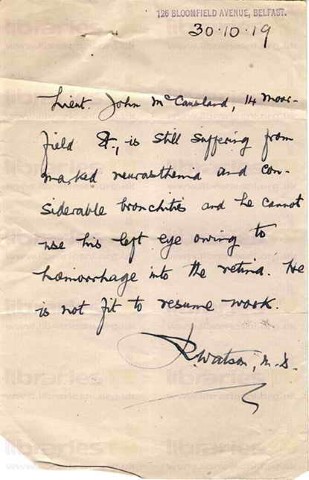 126 BLOOMFIELD AVENUE, BELFAST.
30·10·19
Lieut. John McCausland, 14 Moor-
field St., is still suffering from
marked neurasthenia and con-
siderable bronchitis and he cannot
use his left eye owing to
hæmorrhage into the retina. He
is not fit to resume work.
R. Watson, M.D.
libraries
libraries
libraries